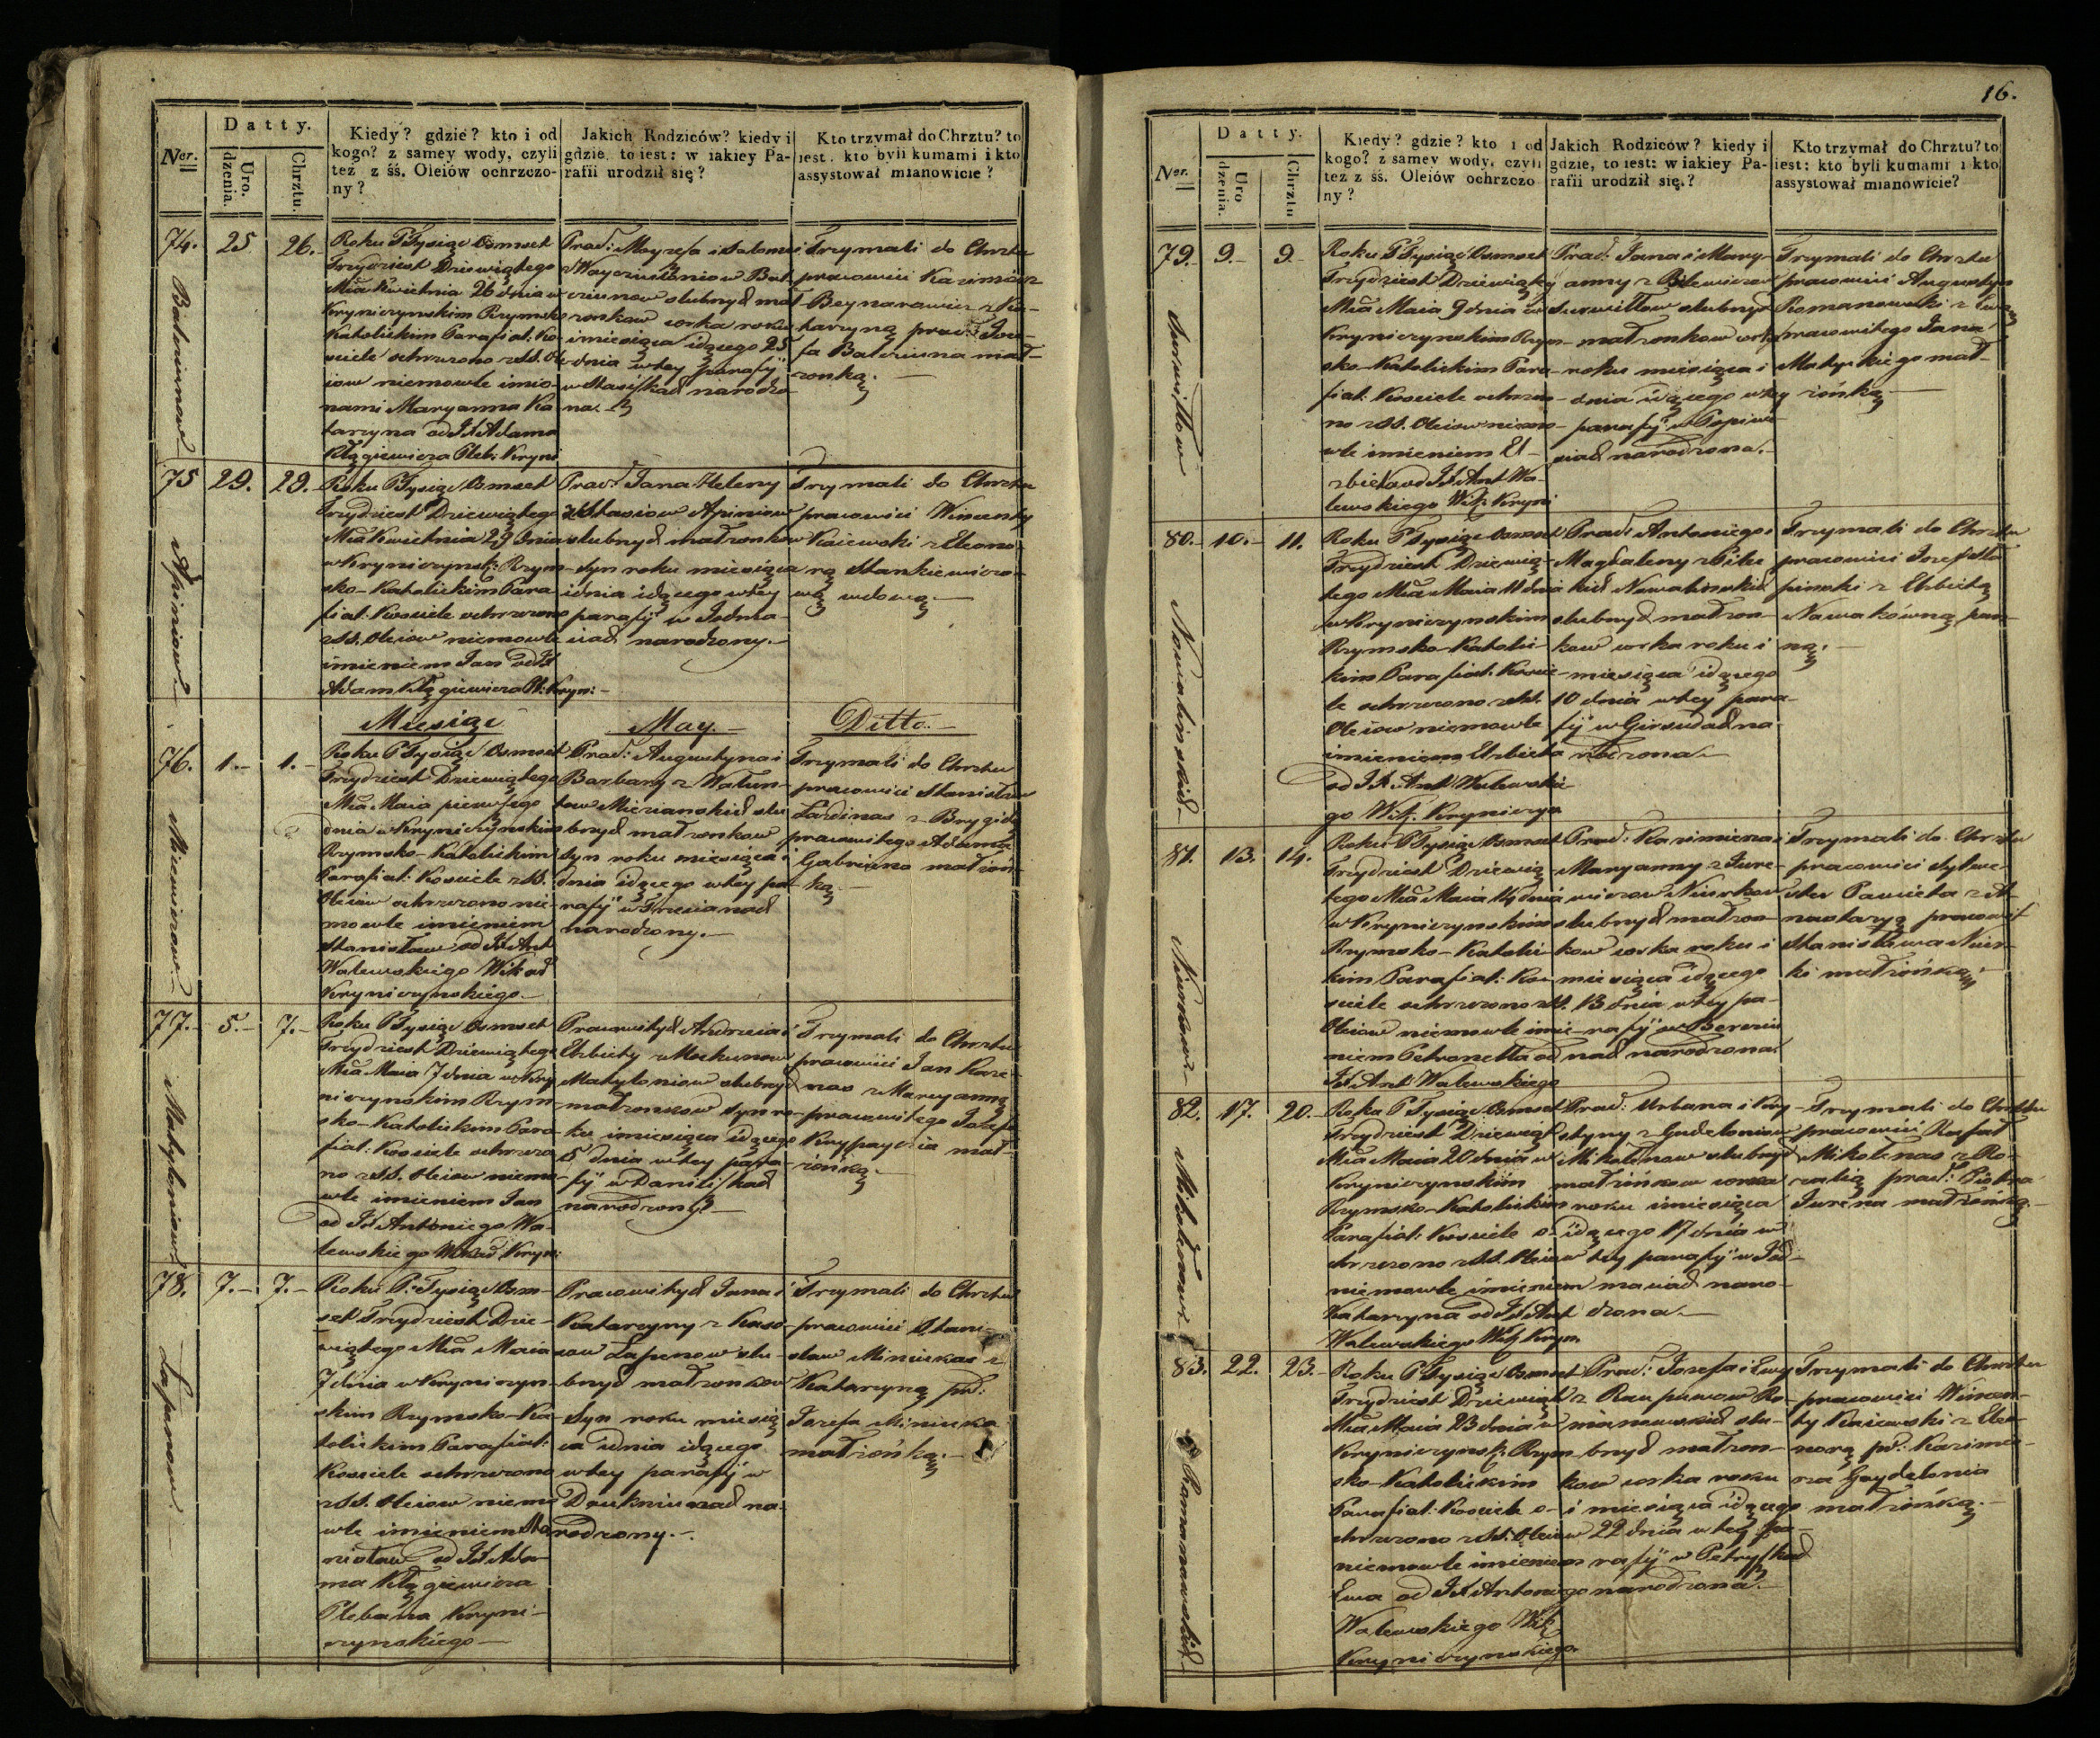 Ner.
Datty.
Uro.
dzenia.
Chrztu.
Kiedy? gdzie? kto i od
kogo? z samey wody, czyli
też z śś. Oleiów ochrzczo-
ny?
Jakich Rodziców? kiedy i
gdzie, to iest: w iakiey Pa-
rafii urodził się?
Kto trzymał do Chrztu? to
iest: kto byli kumami i kto
assystował mianowicie?
74. 25 26.
Roku P Tysiąc Osmset
Trzydziest Dziewiątego
Mca Kwietnia 26 dnia w
Kryniczynskim Rzymsko
Katolickim Parafial: Ko
sciele ochrzczono z SS. Ole
iow niemowle imio-
nami Maryanna Ka
tarzyna od JX Adama
Kłągiewicza Pleb: Kryni
Prac: Moyzesa i Salomei
matronkow corka roku
i miesiąca idącego 25
dnia w tey parafij
narodzo
na.
Trzymali do Chrztu
pracowici Kazimierz
Beynarowicz z Ka-
tarzyną prac: Joze-
fa Baleriuna mał-
zonką.
75 29. 29.
Apiniow
Roku P Tysiąc Osmset
Trzydziest Dziewiątego
Mca Kwietnia 29 dnia
w Kryniczynsk: Rzym-
sko-Katolickim Para
fial: Kosciele ochrzczono
z SS. Oleiow niemowle
imieniem Jan od JX
Adam Kłągiewicza Pl: Kryni:
Prac: Jana Heleny
z Stasiow Apiniow
slubnych małzonkow
syn roku miesiąca
i dnia idącego w tey
parafij w Jodma-
ciach narodzony.
Trzymali do Chrztu
pracowici Wincenty
Kaiewski z Eleono
rą Stankiewiczo-
wą wdową.
Miesiąc May. Ditto.
76. 1. 1.
Roku P Tysiąc Osmset
Trzydziest Dziewiątego
Mca Maia pierwszego
dnia w Krynicżynskim
Rzymsko-Katolickim
Parafial: Kosciele z SS.
Oleiow ochrzczono nie-
mowle imieniem
Stanisław od JX Ant
Walewskiego Wikar
Krynicżynskiego.
Prac: Augustyna i
Barbary z Watun-
slu
bnych małzonkow
syn roku miesiąca i
dnia idącego w tey pa-
rafij
narodzony.
Trzymali do Chrztu
pracowici Stanisław
Lardinas z Brygidą
pracowitego Adama
Gabriuna małzon-
ką.
77. 5. 7.
Matyloniow
Roku P Tysiąc Osmset
Trzydziest Dziewiątego
Mca Maia 7 dnia w Kry
niczynskim Rzym-
sko-Katolickim Para
fial: Kosciele ochrzczo
no z SS. Oleiow niemo-
wle imieniem Jan
od JX Antoniego Wa-
lewskiego Wikar Kryn:
Pracowitych Andrzeia i
Elzbiety z Mockunow
Matyloniow slubnych
małzonkow syn ro-
ku i miesiąca idącego
5 dnia w tey para-
fij w Daniliszkach
narodzony.
Trzymali do Chrztu
pracowici Jan
z Maryanną
pracowitego Jozefa
mał-
zonką.
78. 7. 7.
Łapanow
Roku P. Tysiąc Osm-
set Trzydziest Dzie-
wiątego Mca Maia
7 dnia w Kryniczyn-
skim Rzymsko-Ka-
tolickim Parafial:
Kosciele ochrzczono
z SS. Oleiow niemo
wle imieniem Sta
nisław od JX Ada-
ma Kłągiewicza
Plebana Kryni-
czynskiego
Pracowitych Jana i
Katarzyny z Kaso-
now Łapenow slu-
bnych małzonkow
syn roku miesią
ca i dnia idącego
w tey parafij w
na
rodzony.
Trzymali do Chrztu
pracowici Stani-
sław Miniukas z
Katarzyną pr:
Jozefa Miniuka
małzonką.
16.
Ner.
Datty.
Uro
dzenia.
Chrztu
Kiedy? gdzie? kto i od
kogo? z samey wody, czyli
też z śś. Oleiów ochrzczo
ny?
Jakich Rodziców? kiedy i
gdzie, to iest: w iakiey Pa-
rafii urodził się.?
Kto trzymał do Chrztu? to
iest: kto byli kumami i kto
assystował mianowicie?
79. 9. 9.
Surwiłłow
Roku P Tysiąc Osmset
Trzydziest Dziewiąty
Mca Maia 9 dnia w
Kryniczynskim Rzym-
sko-Katolickim Para-
fial: Kosciele ochrzczo-
no z SS. Oleiow niemo-
wle imieniem El-
zbieta od JX Ant Wa-
lewskiego Wik: Kryni
Prac: Jana i Mary-
anny z Bilewiczow
Surwiłłow slubnych
małzonkow corka
roku miesiąca i
dnia idącego w tey
parafij w Popiwe
siach narodzona.
Trzymali do Chrztu
pracowici Augustyn
Romanowski z Ewą
pracowitego Jana
Matyskiego mał-
zonką
80. 10. 11.
Nowalinskich
Roku P Tysiąc Osmset
Trzydziest Dziewią-
tego Mca Maia 11 dnia
w Kryniczynskim
Rzymsko-Katolic-
kim Parafial: Koscie-
le ochrzczono z SS.
Oleiow niemowle
imieniem Elzbieta
od JX Ant Walewskie
go Wik. Kryniczyn
Prac: Antoniego i
Magdaleny z Pile
kich Nowalinskich
slubnych małzon-
kow corka roku i
miesiąca idącego
10 dnia w tey para-
fij w Girsudach na
rodzona.
Trzymali do Chrztu
pracowici Jozef
z Elzbietą
Nowakowną pan-
ną.
81. 13. 14.
Niurkow
Roku P Tysiąc Osmset
Trzydziest Dziewią-
tego Mca Maia 14 dnia
w Kryniczynskim
Rzymsko-Katolic-
kim Parafial: Ko-
sciele ochrzczono z SS.
Oleiow niemowle imie-
niem Petronella od
JX Ant Walewskiego
Prac: Kazimierza i
Maryanny z Jure-
wiczow Niurkow
slubnych małzon-
kow corka roku i
miesiąca idącego
13 dnia w tey pa-
rafij w Berziu
nach narodzona.
Trzymali do Chrztu
pracowici Sylwe-
ster z A-
nastazyą pracowit
Stanisława Niur-
ki małzonką.
82. 17. 20.
Roku P Tysiąc Osmset
Trzydziest Dziewiąt
Mca Maia 20 dnia w
Kryniczynskim
Rzymsko-Katolickim
Parafial: Kosciele o-
chrzczono z SS. Oleiow
niemowle imieniem
Katarzyna od JX Ant
Walewskiego Wik Kryn
Prac: Urbana i Kry-
styny z Gudeloniow
Mikolenow slubnych
małzonkow corka
roku i miesiąca
idącego 17 dnia w
tey parafij w Jod-
maciach naro-
dzona.
Trzymali do Chrztu
pracowici Rafał
Mikolenas z Ro-
zalią prac: Piotra
Jurena małzonką.
83. 22. 23.
Romanowskich
Roku P Tysiąc Osmset
Trzydziest Dziewiąt
Mca Maia 23 dnia w
Kryniczynsk: Rzym-
sko-Katolickim
Parafial: Kosciele o-
chrzczono z SS. Oleiow
niemowle imieniem
Ewa od JX Antoniego
Walewskiego Wik
Kryniczynskiego.
Prac: Jozefa i Ewy
z Raupuwow Ro-
manowskich slu-
bnych małzon-
kow corka roku
i miesiąca idącego
22 dnia w tey pa-
rafij w Petryszkach
narodzona.
Trzymali do Chrztu
pracowici Wincen-
ty Kaiewski z Eleo-
norą pr: Kazimie-
rza Gaydelonia
małzonką.